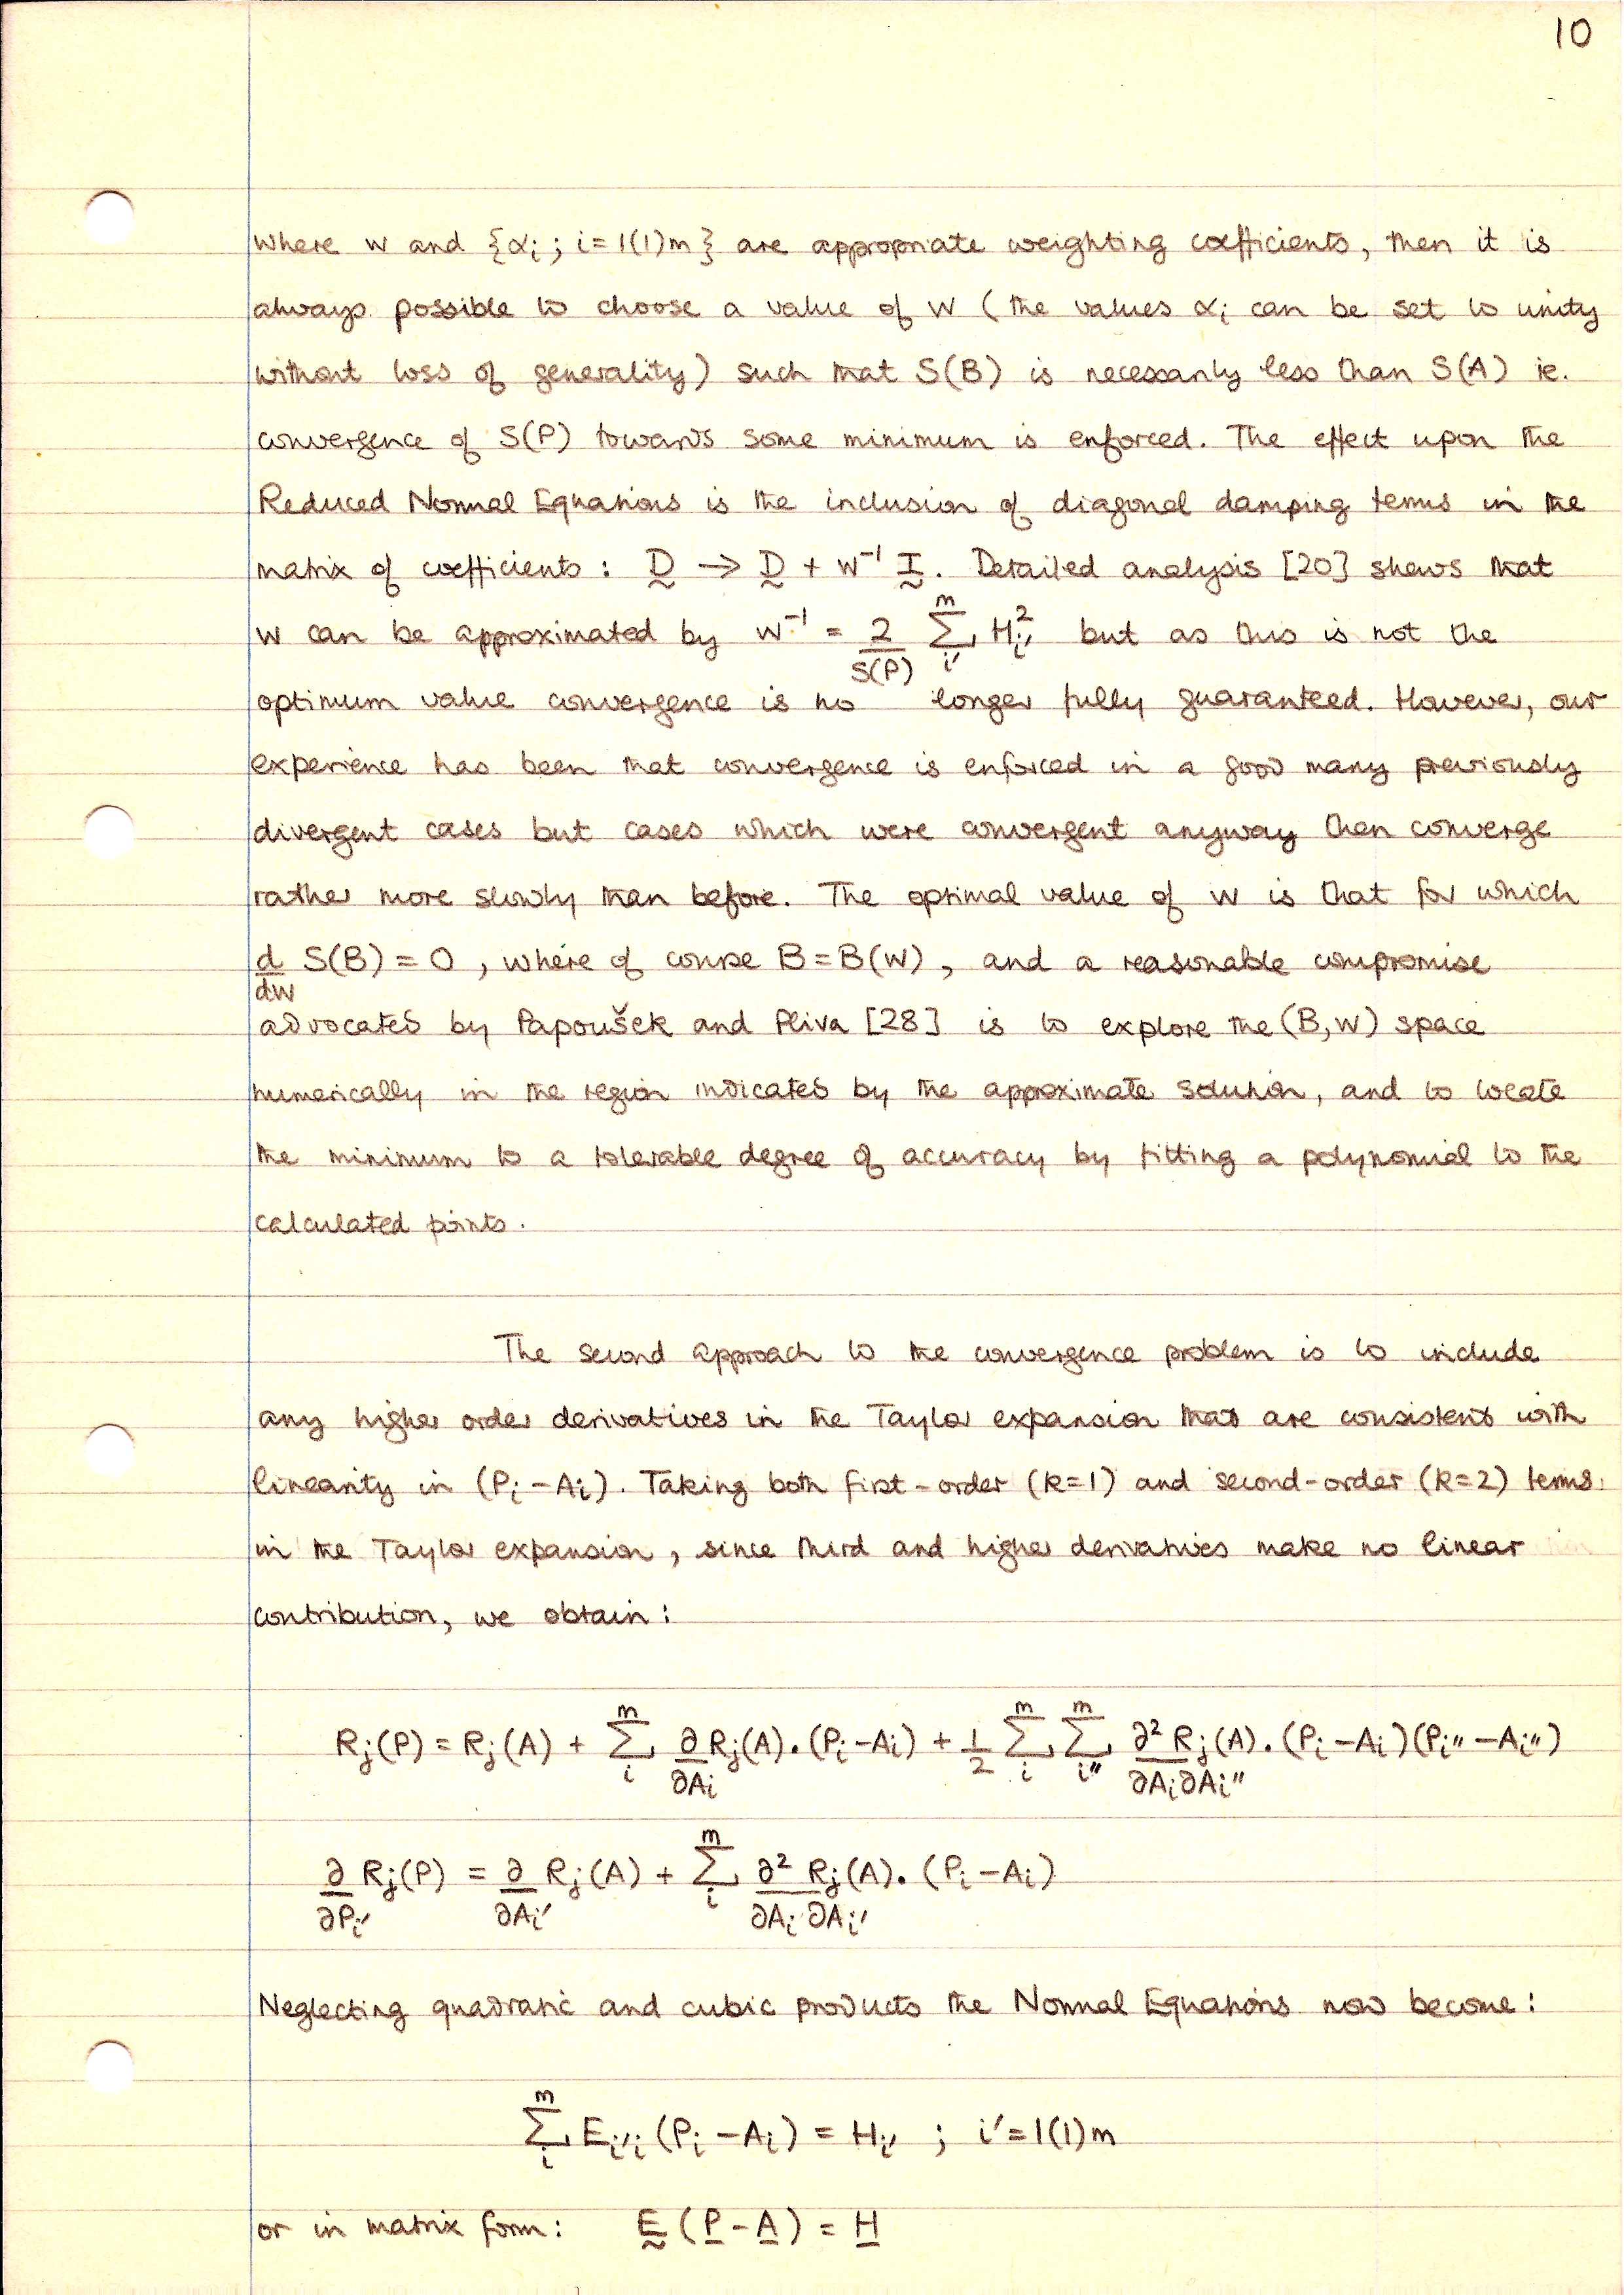 10
where w and {αᵢ ; i=1(1)m} are appropriate weighting coefficients, then it is
always possible to choose a value of w (the values αᵢ can be set to unity
without loss of generality) such that S(B) is necessarily less than S(A) ie.
convergence of S(P) towards some minimum is enforced. The effect upon the
Reduced Normal Equations is the inclusion of diagonal damping terms in the
matrix of coefficients : D̰ → D̰ + w⁻¹ Ḭ. Detailed analysis [20] shows that
w can be approximated by w⁻¹ = 2/S(P) Σᵢ′ᵐ Hᵢ′² but as this is not the
optimum value convergence is no longer fully guaranteed. However, our
experience has been that convergence is enforced in a good many previously
divergent cases but cases which were convergent anyway then converge
rather more slowly than before. The optimal value of w is that for which
d/dw S(B) = 0 , where of course B=B(w) , and a reasonable compromise
advocated by Papoušek and Pliva [28] is to explore the (B,w) space
numerically in the region indicated by the approximate solution, and to locate
the minimum to a tolerable degree of accuracy by fitting a polynomial to the
calculated points.
The second approach to the convergence problem is to include
any higher order derivatives in the Taylor expansion that are consistent with
linearity in (Pᵢ-Aᵢ). Taking both first-order (k=1) and second-order (k=2) terms
in the Taylor expansion , since third and higher derivatives make no linear
contribution, we obtain :
Rⱼ(P) = Rⱼ(A) + Σᵢᵐ ∂/∂Aᵢ Rⱼ(A).(Pᵢ-Aᵢ) + 1/2 Σᵢᵐ Σᵢ″ᵐ ∂²/∂Aᵢ∂Aᵢ″ Rⱼ(A).(Pᵢ-Aᵢ)(Pᵢ″-Aᵢ″)
∂/∂Pᵢ′ Rⱼ(P) = ∂/∂Aᵢ′ Rⱼ(A) + Σᵢᵐ ∂²/∂Aᵢ∂Aᵢ′ Rⱼ(A).(Pᵢ-Aᵢ)
Neglecting quadratic and cubic products the Normal Equations now become :
Σᵢᵐ Eᵢ′ᵢ (Pᵢ-Aᵢ) = Hᵢ′ ; i′=1(1)m
or in matrix form : Ḛ (P̲-A̲) = H̲